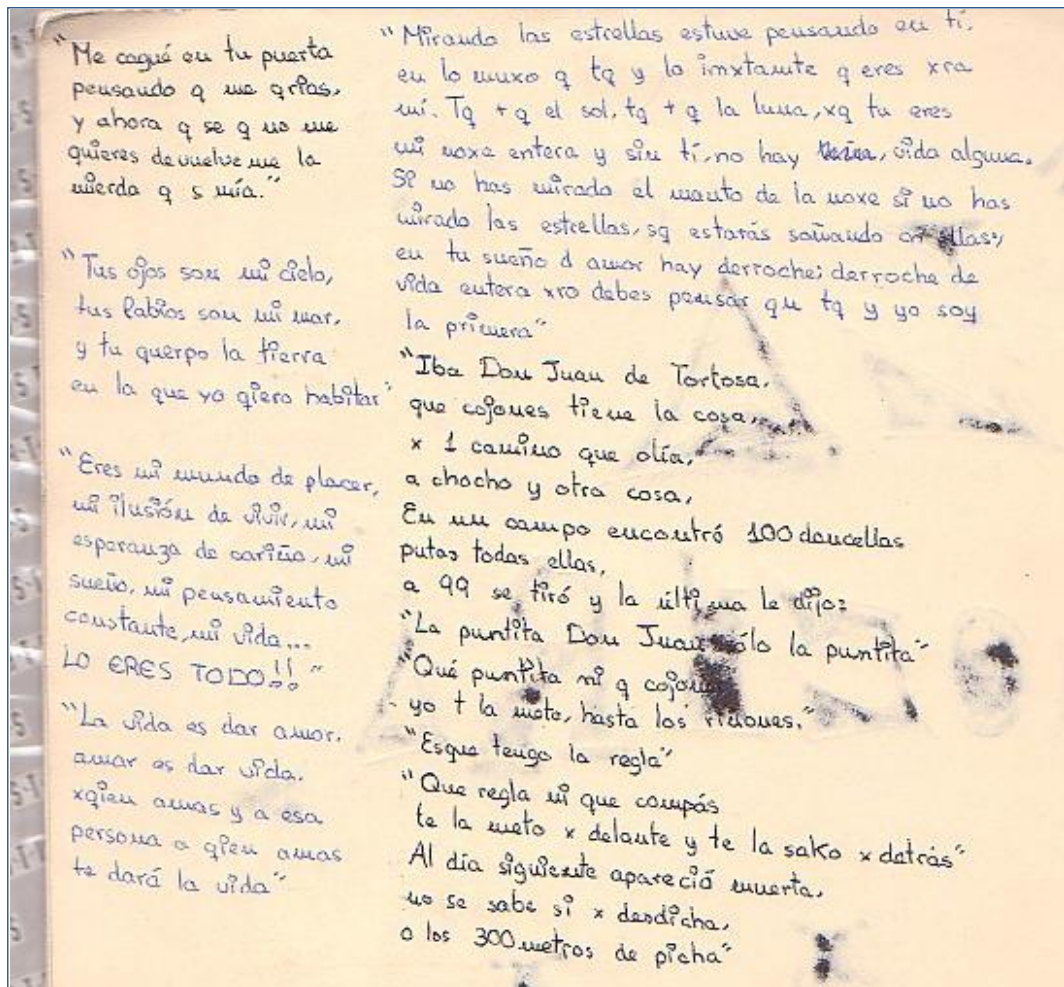 "Me cagué en tu puerta
pensando q me qrías,
y ahora q se q no me
quieres devuelve me la
mierda q s mía."
"Tus ojos son mi cielo,
tus labios son mi mar,
y tu querpo la tierra
en la que yo qiero habitar"
"Eres mi mundo de placer,
mi ilusión de vivir, mi
esperanza de cariño, mi
sueño, mi pensamiento
constante, mi vida...
LO ERES TODO!!"
"La vida es dar amor.
amar es dar vida.
xqien amas y a esa
persona a qien amas
te dará la vida"
"Mirando las estrellas estuve pensando en tí,
en lo muxo q tq y lo imxtante q eres xra
mí. Tq + q el sol, tq + q la luna, xq tu eres
mi noxe entera y sin tí, no hay vida alguna.
Si no has mirado el manto de la noxe si no has
mirado las estrellas, sq estarás soñando ellas;
en tu sueño d amor hay derroche; derroche de
vida entera xro debes pensar qu tq y yo soy
la primera"
"Iba Don Juan de Tortosa,
que cojones tiene la cosa,
x 1 camino que olía,
a chocho y otra cosa,
En un campo encontró 100 doncellas
putas todas ellas,
a 99 se tiró y la última le dijo:
"La puntita Don Juan sólo la puntita"
"Qué puntita ni q cojones
yo t la meto, hasta los riñones."
"Esque tengo la regla"
"Que regla ni que compás
te la meto x delante y te la sako x detrás"
Al día siguiente apareció muerta,
no se sabe si x desdicha,
o los 300 metros de picha"